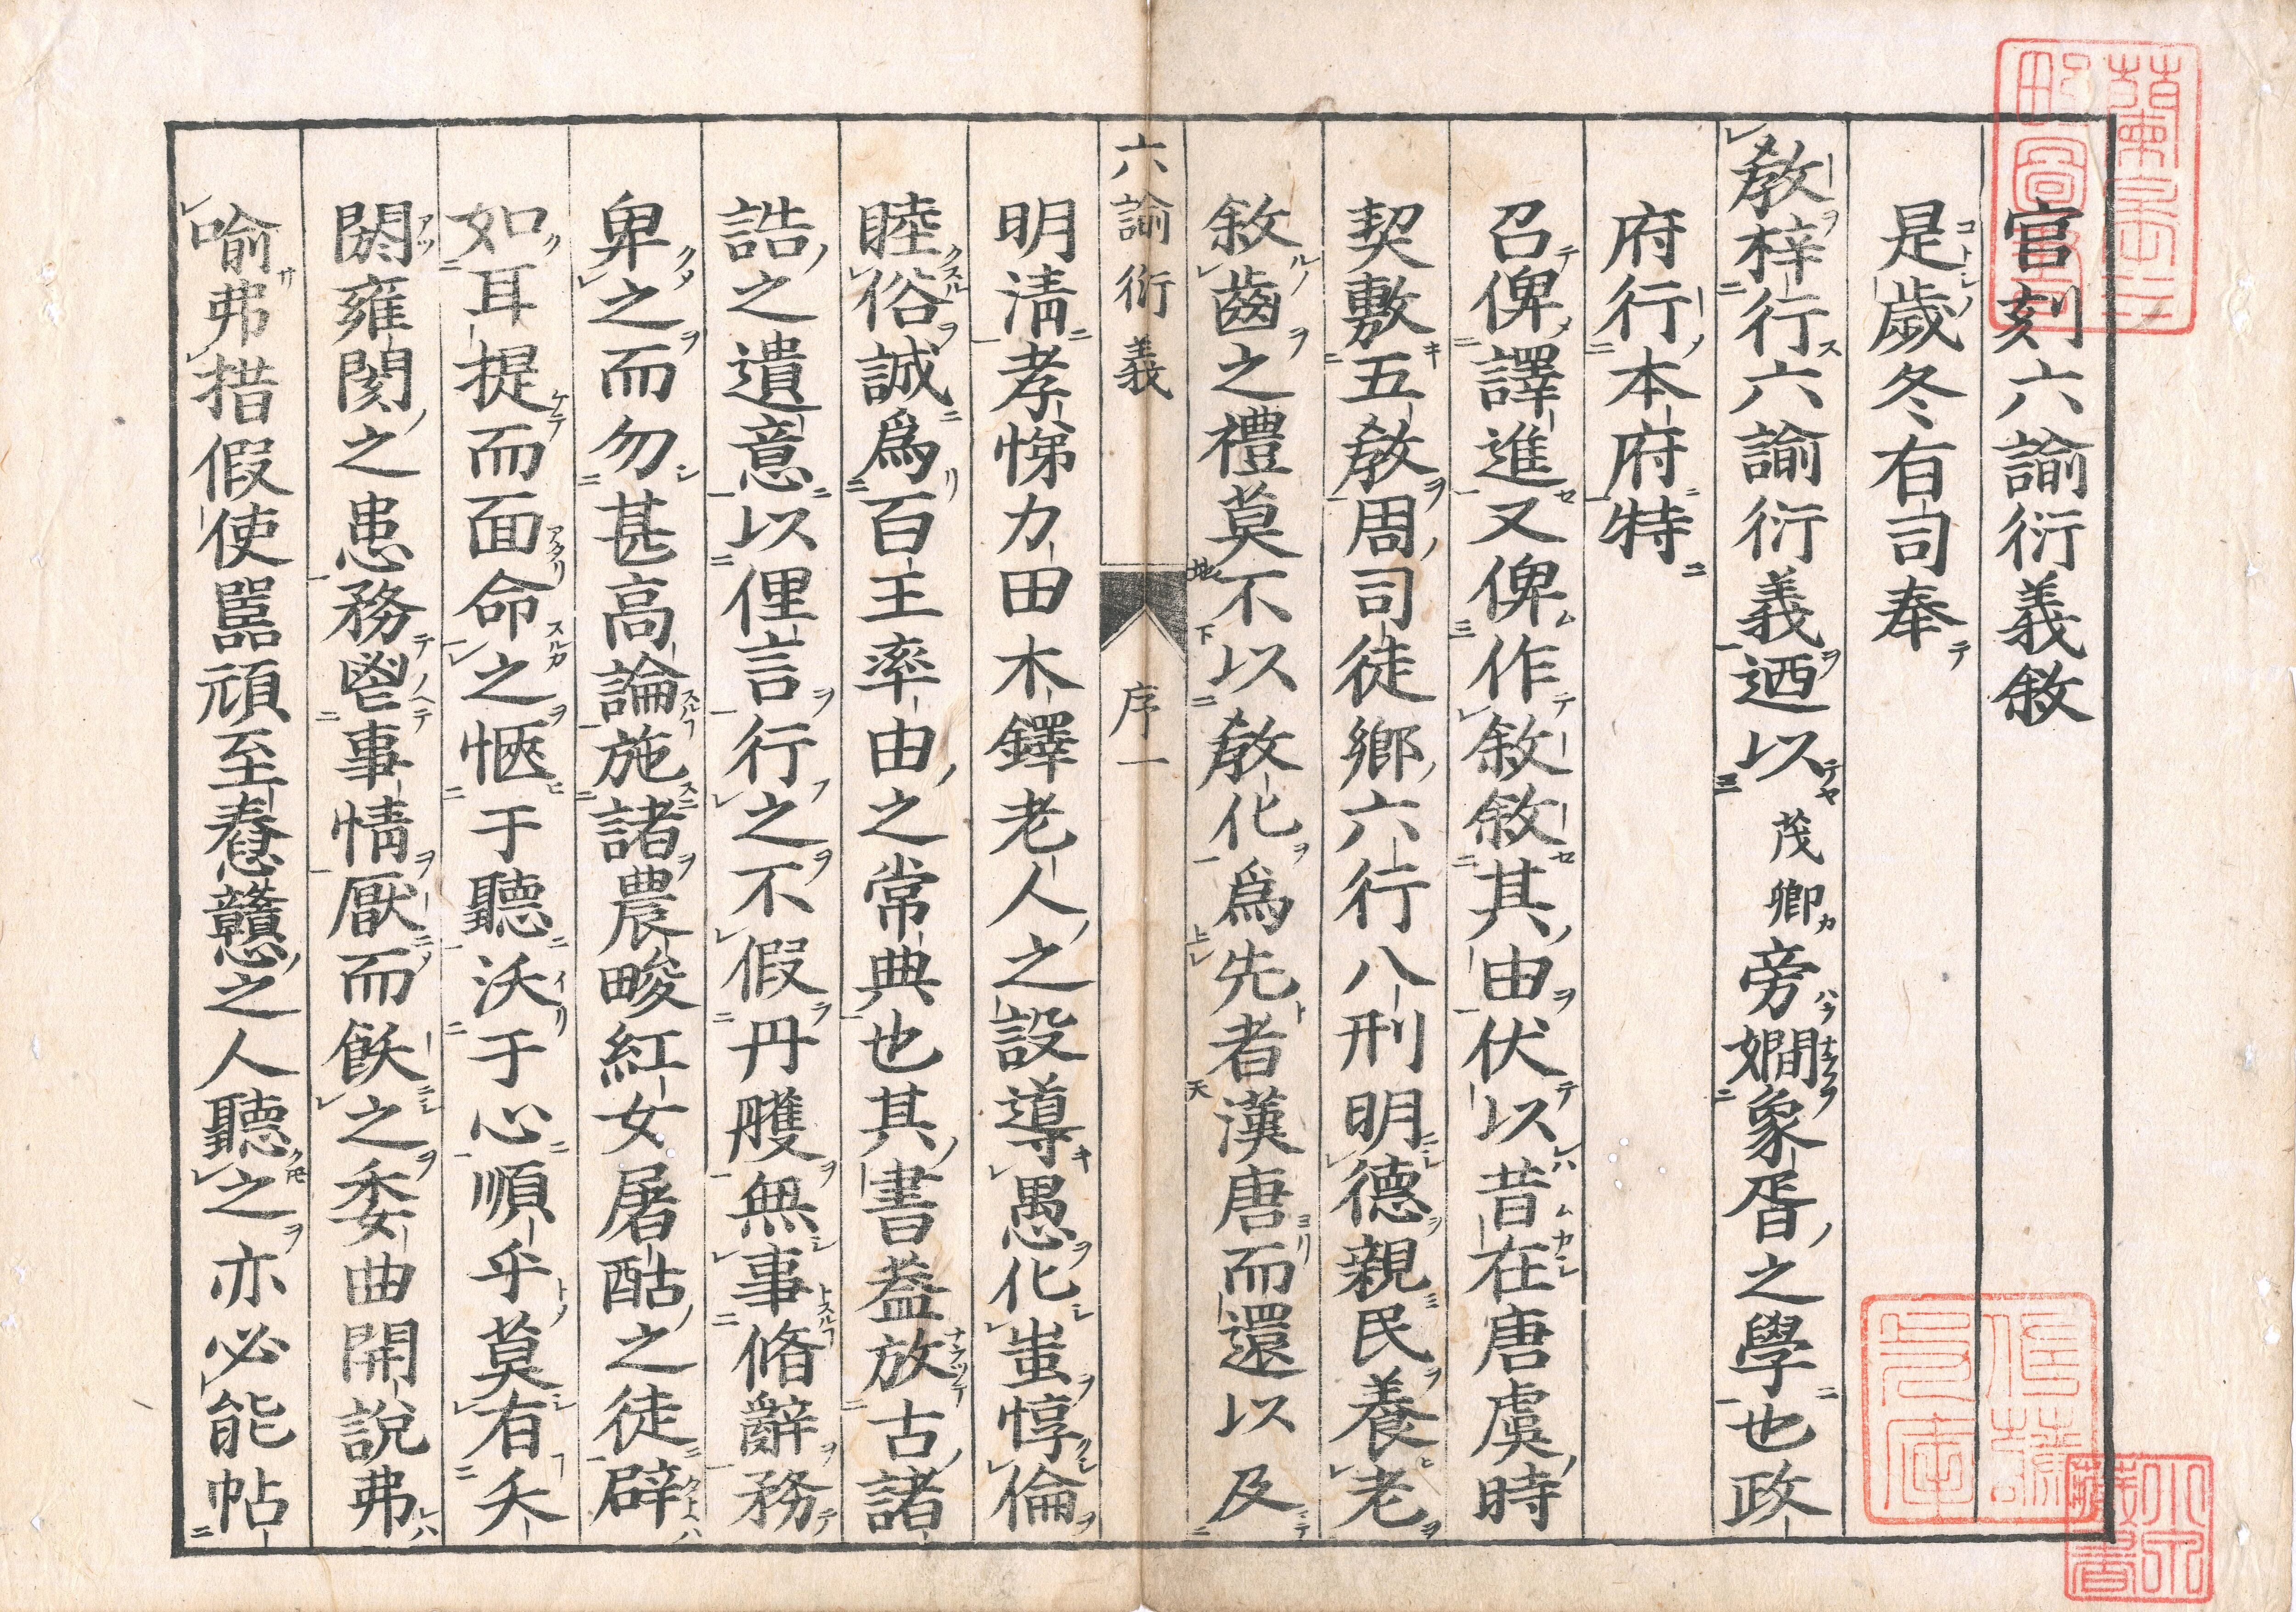 官刻六諭衍義敘
是歲冬有司奉
教梓行六諭衍義迺以茂卿旁嫺象胥之學也政
府行本府特
召俾譯進又俾作敘敘其由伏以昔在唐虞時
契敷五教周司徒鄉六行八刑明德親民養老
敘齒之禮莫不以教化爲先者漢唐而還以及
六諭衍義 序 一
明清孝悌力田木鐸老人之設導愚化蚩惇倫
睦俗誠爲百王率由之常典也其書葢放古諸
誥之遺意以俚言行之不假丹雘無事脩辭務
卑之而勿甚高論施諸農畯紅女屠酤之徒辟
如耳提而面命之愜于聽沃于心順乎莫有夭
閼雍閡之患務鬯事情厭而飫之委曲開說弗
喻弗措假使嚚頑至惷戇之人聽之亦必能帖